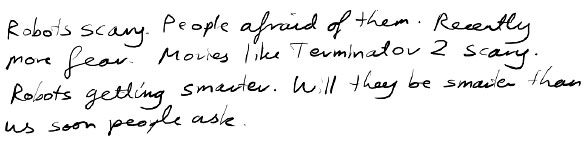 Robots scary. People afraid of them. Recently
more fear. Movies like Terminator 2 scary.
Robots getting smarter. Will they be smarter than
us soon people ask.